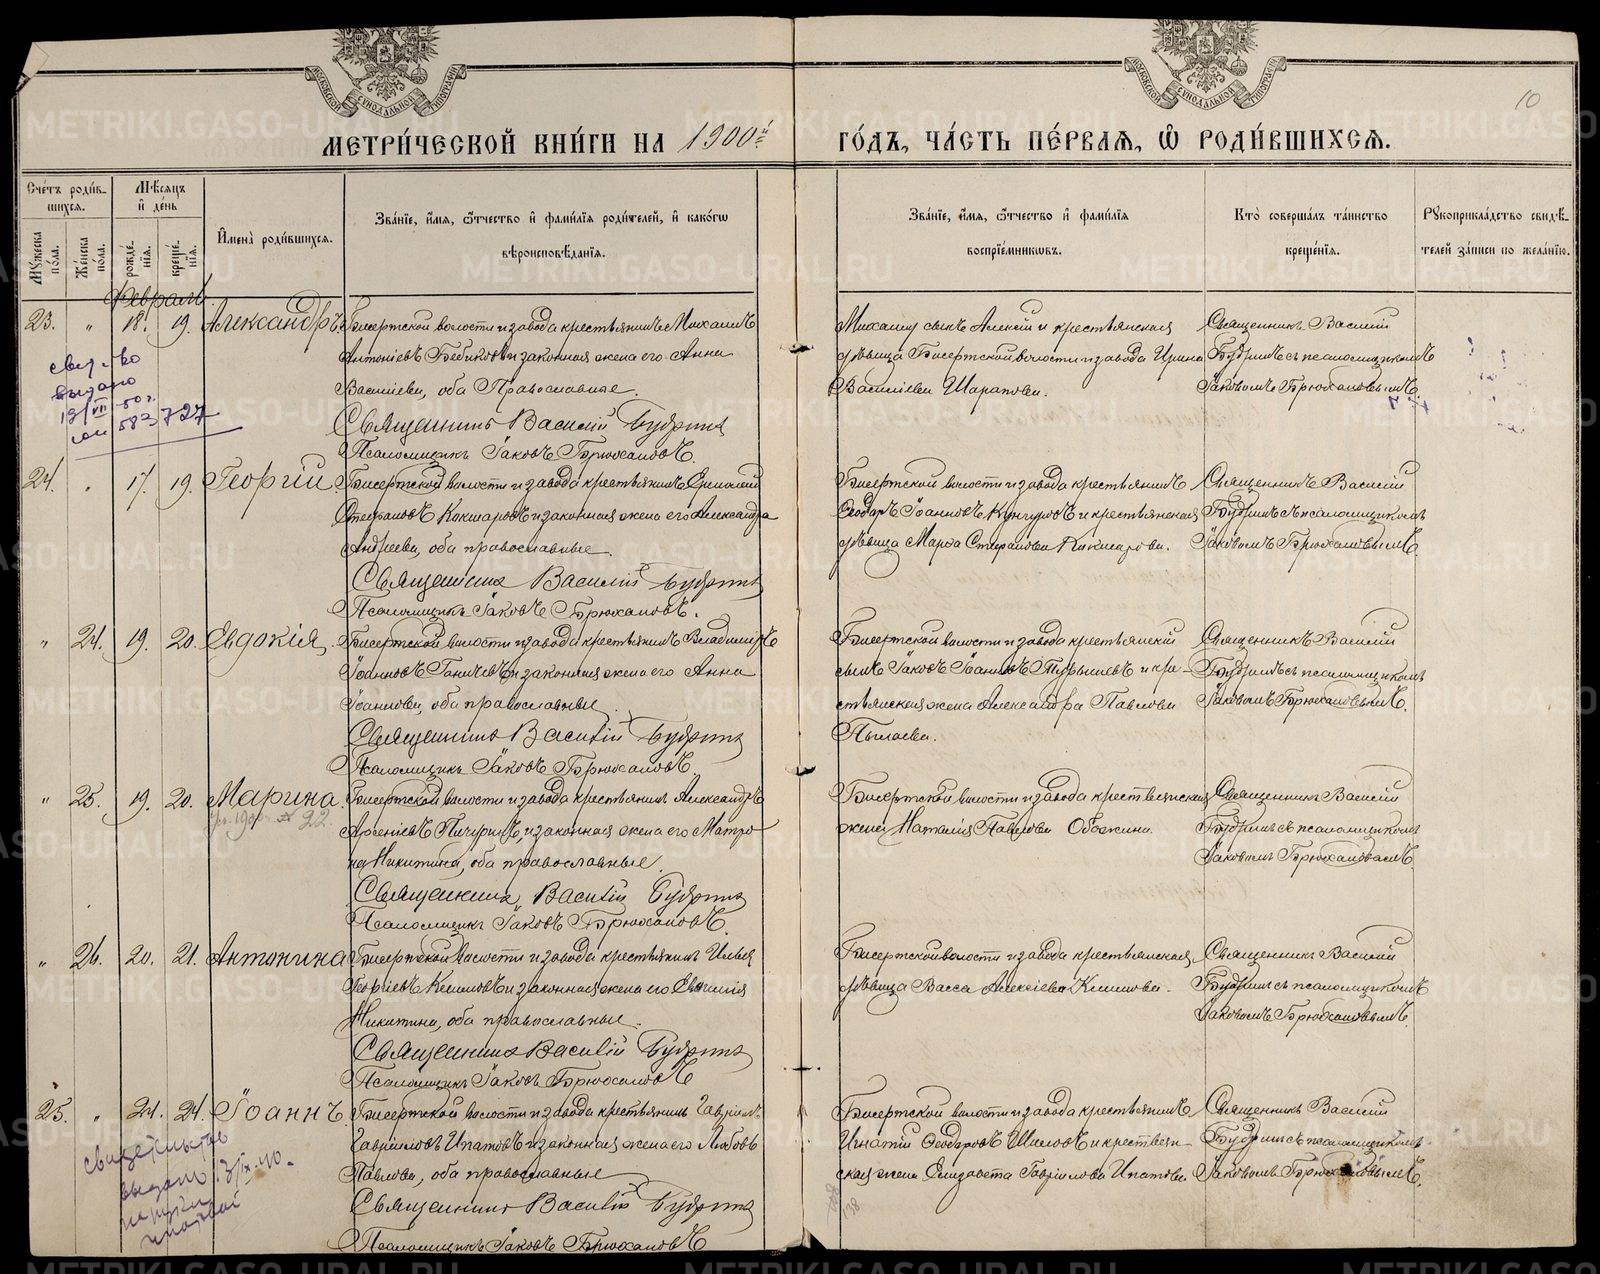 МЕТРИ́ЧЕСКОЙ КНИ́ГИ НА 1900й
ГО́ДЪ, ЧА́СТЬ ПЕ́РВАЯ, Ѽ РОДИ́ВШИХСЯ.
10
Сче́тъ роди́в-
шихся.
Му́жеска по́ла.
Же́нска по́ла.
Мѣ́сяцъ
и҆ де́нь
рожде́-
нїя.
креще́-
нїя.
И҆мена̀ роди́вшихся.
Зва́нїе, и҆́мя, ѻ҆́тчество и҆ фами́лїя роди́телей, и҆ како́гѡ
вѣроисповѣ́данїя.
Зва́нїе, и҆́мя, ѻ҆́тчество и҆ фами́лїя
воспрїе́мниковъ.
Кто̀ соверша́лъ та́инство
креще́нїя.
Рꙋкоприкла́дство свидѣ́-
телей за́писи по жела́нїю.
Февраль.
23. " 18. 19. Александръ.
Бисертской волости и завода крестьянинъ Михаилъ
Антоніевъ и законная жена его Анна
Василіева, оба Православные.
Священникъ Василій Будринъ
Псаломщикъ Іаковъ Брюхановъ.
Михаилу сынъ Алексій и крестьянская
дѣвица Бисертской волости и завода Ирина
Василіева Шарапова.
Священникъ Василій
Будринъ съ псаломщикомъ
Іаковомъ Брюхановымъ.
выдано
727
24. " 17. 19. Георгій
Бисертской волости и завода крестьянинъ Ермолай
Стефановъ Кокшаровъ и законная жена его Александра
Андреева, оба православные.
Священникъ Василій Будринъ
Псаломщикъ Іаковъ Брюхановъ.
Бисертской волости и завода крестьянинъ
Ѳеодоръ Іоанновъ Кунгуровъ и крестьянская
дѣвица Марѳа Стефанова Кокшарова.
Священникъ Василій
Будринъ съ псаломщикомъ
Іаковомъ Брюхановымъ.
" 24. 19. 20. Евдокія.
Бисертской волости и завода крестьянинъ Владимиръ
Іоанновъ и законная жена его Анна
Іоаннова, оба православные.
Священникъ Василій Будринъ
Псаломщикъ Іаковъ Брюхановъ
Бисертской волости и завода крестьянскій
сынъ Іаковъ Іоанновъ Турышевъ и кре-
стьянская жена Александра Павлова
Пылаева.
Священникъ Василій
Будринъ съ псаломщикомъ
Іаковомъ Брюхановымъ.
" 25. 19. 20. Марина
22
Бисертской волости и завода крестьянинъ Александръ
Арсеніевъ Пичугинъ, и законная жена его Матро-
на Никитина, оба православные.
Священникъ Василій Будринъ
Псаломщикъ Іаковъ Брюхановъ.
Бисертской волости и завода крестьянская
жена Наталія Павлова Обожина.
Священникъ Василій
Будринъ съ псаломщикомъ
Іаковомъ Брюхановымъ.
" 26. 20. 21. Антонина
Бисертской волости и завода крестьянинъ Илья
Георгіевъ Климовъ и законная жена его Евѳимія
Никитина, оба православные.
Священникъ Василій Будринъ
Псаломщикъ Іаковъ Брюхановъ
Бисертской волости и завода крестьянская
дѣвица Васса Алексіева Климова.
Священникъ Василій
Будринъ съ псаломщикомъ
Іаковомъ Брюхановымъ.
25. " 24. 24. Іоаннъ.
Бисертской волости и завода крестьянинъ Гавріилъ
Гавріиловъ Ипатовъ и законная жена его Любовь
Павлова, оба православные
Священникъ Василій Будринъ
Псаломщикъ Іаковъ Брюхановъ
Бисертской волости и завода крестьянинъ
Игнатій Ѳеодоровъ Шиловъ и крестьян-
ская жена Елизавета Гавріилова Ипатова.
Священникъ Василій
Будринъ съ псаломщикомъ
Іаковомъ Брюхановымъ.
свидетельство
выдано
METRIKI.GASO-URAL.RU